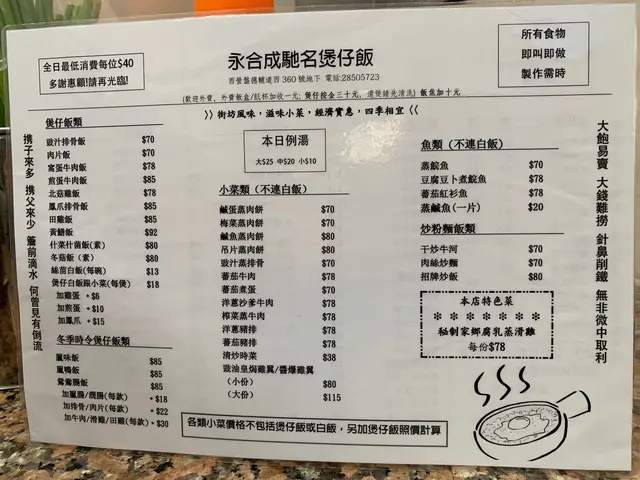 全日最低消費每位$40
多謝惠顧!請再光臨!
永合成馳名煲仔飯
西營盤德輔道西 360 號地下 電話:28505723
(歡迎外賣, 外賣飯盒/紅杯加收一元; 煲仔按金三十元, 還煲請先清洗) 飯焦加十元
所有食物
即叫即做
製作需時
〉〉街坊風味，滋味小菜，經濟實惠，四季相宜〈〈
携子來多 携父來少 簷前滴水 何曾見有倒流
煲仔飯類
豉汁排骨飯 $70
肉片飯 $70
窩蛋牛肉飯 $78
煎蛋牛肉飯 $85
北菇雞飯 $78
鳳爪排骨飯 $85
田雞飯 $85
黃鱔飯 $92
什菜什菌飯(素) $80
冬菇飯 (素) $80
絲苗白飯(每碗) $13
煲仔白飯跟小菜(每煲) $18
加雞蛋 +$6
加煎蛋 +$10
加鳳爪 +$15
冬季時令煲仔飯類
臘味飯 $85
臘鴨飯 $85
鴛鴦腸飯 $85
加臘腸/潤腸(每款) +$18
加排骨/肉片(每款) +$22
加牛肉/滑雞/田雞(每款) +$30
本日例湯
大$25 中$20 小$10
小菜類（不連白飯）
鹹蛋蒸肉餅 $70
梅菜蒸肉餅 $70
鹹魚蒸肉餅 $80
吊片蒸肉餅 $80
豉汁蒸排骨 $70
蕃茄牛肉 $78
蕃茄煮蛋 $70
洋蔥沙爹牛肉 $78
榨菜蒸牛肉 $78
洋蔥豬排 $78
蕃茄豬排 $78
清炒時菜 $38
豉油皇焗雞翼/醬爆雞翼
(小份) $80
(大份) $115
魚類（不連白飯）
蒸鯇魚 $70
豆腐豆卜煮鯇魚 $78
蕃茄紅衫魚 $78
蒸鹹魚(一片) $20
炒粉麵飯類
干炒牛河 $70
肉絲炒麵 $70
招牌炒飯 $80
本店特色菜
秘制家鄉腐乳蒸滑雞
每份$78
大飽易賣 大錢難撈 針鼻削鐵 無非微中取利
各類小菜價格不包括煲仔飯或白飯，另加煲仔飯照價計算